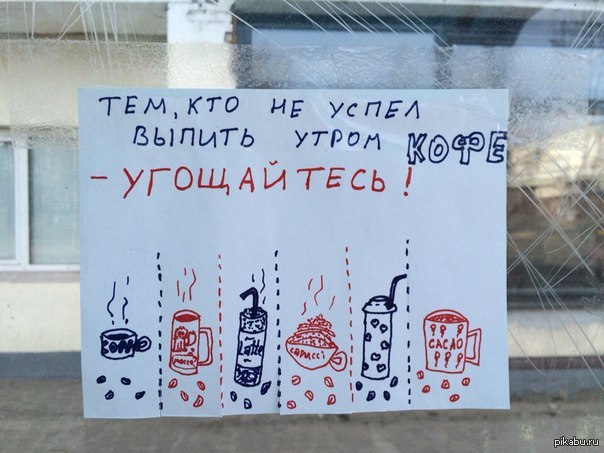 ТЕМ, КТО НЕ УСПЕЛ
ВЫПИТЬ УТРОМ КОФЕ
- УГОЩАЙТЕСЬ!
Latte
CACAO
pikabu.ru